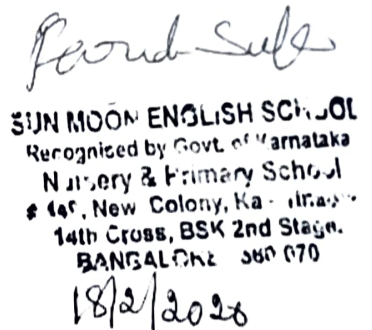 SUN MOON ENGLISH SCHOOL
Recognised by Govt. of Karnataka
Nursery & Primary School
New Colony,
14th Cross, BSK 2nd Stage.
BANGALORE 560 070
18/2/2026